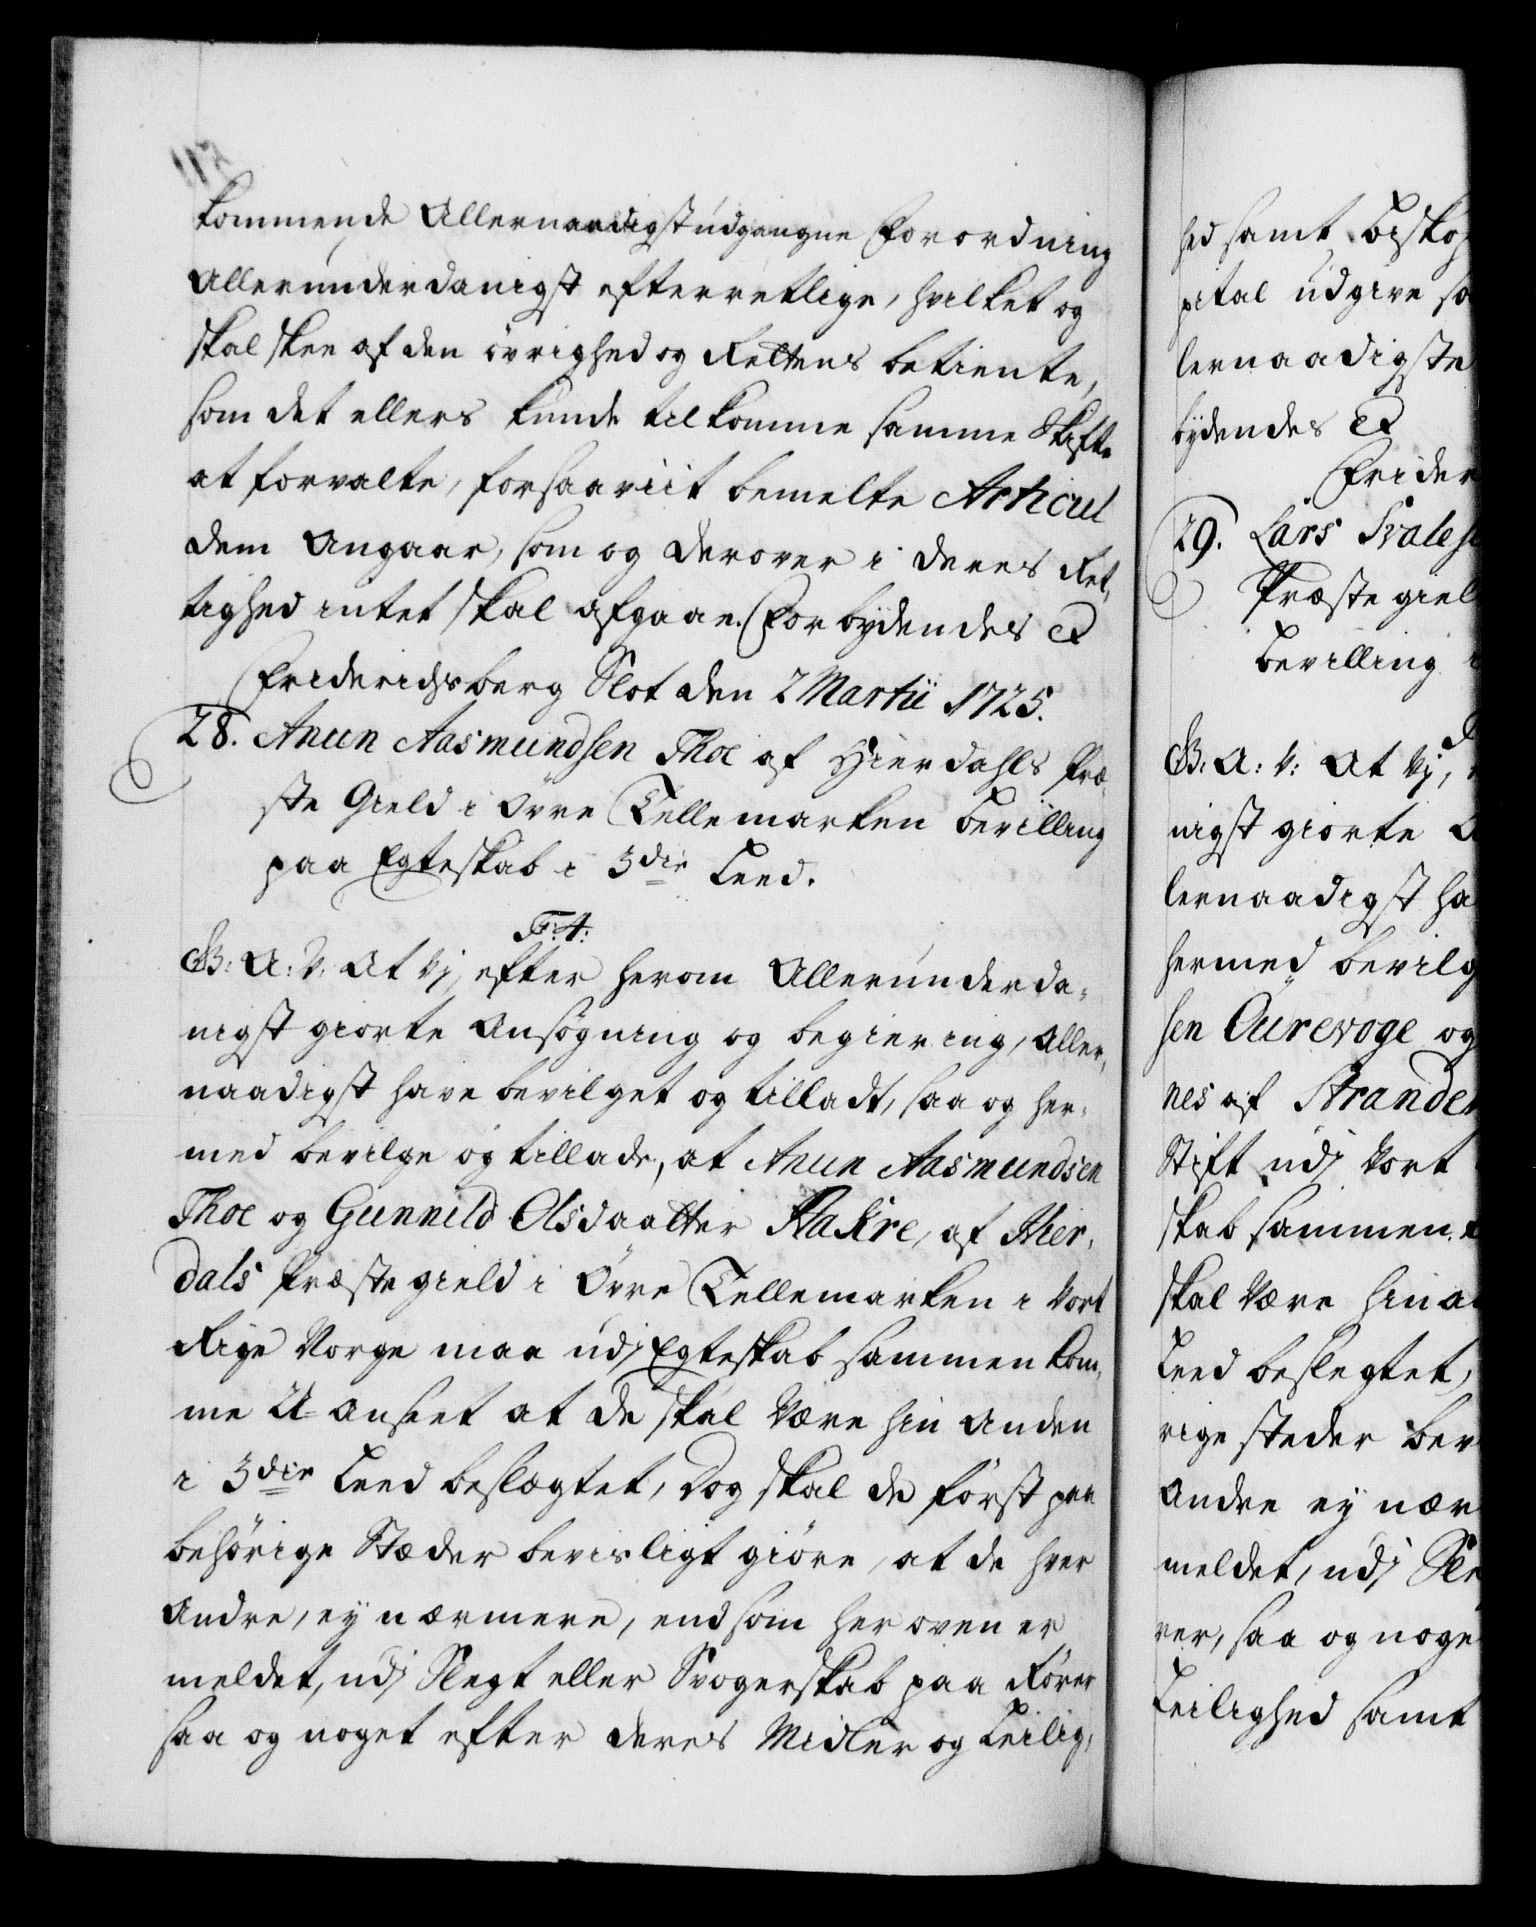 112
kommende Allernaadigst udgangne Forordning
Allerunderdanigst efterretlige, hvilket og
skal skee af den övrighed og Rettens betiente,
som det ellers kunde tilkomme samme Skifte
at forvalte, forsaaviit bemelte Articul
dem Angaar, som og derover i deres Ret,
tighed intet skal afgaae. Forbydendes &
Friderichsberg Slot den 2 Martii 1725.
28. Anun Aasmundsen Thoe af Hierdahls Præ
ste Gield i Övre Tellemarken bevilling
paa Egteskab i 3die Leed.
F: 4:
G: A: V: At Vj, efter herom Allerunderda-
nigst giorte Ansögning og begiering, Aller,
naadigst have bevilget og tilladt, saa og her-
med bevilge og tillade, at Anun Aasmundsen
Thoe og Gunnild Olsdaatter Aakre, af Hier,
dals Præstegield i Övre Tellemarken i Vort
Rige Norge maa udj Egteskab sammen kom,
me U-anseet at de skal være hin Anden
i 3die Leed beslægtet, Dog skal de först paa
behörige Stæder bevisligt giöre, at de hver
Andre, ey nærmere, end som her oven er
meldet, udj Slegt eller Svogerskab paa Rörer
saa og noget efter deres Midler og Leilig,
hed samt Biskop
pital udgive so
lernaadigste
bydendes &
Frider
29. Lars Ivalse
Præstegiel
bevilling i
G: A: V: At Vj,
nigst giorte A
lernaadigst ha
hermed bevilg
sen Aurevoge og
nes af Strande
Stift udj Vort
skab sammen
skal være hin a
Leed beslegtet,
rige steder bev
Andre ey nær
meldet, udj Sle
rer, saa og noge
Leilighed samt